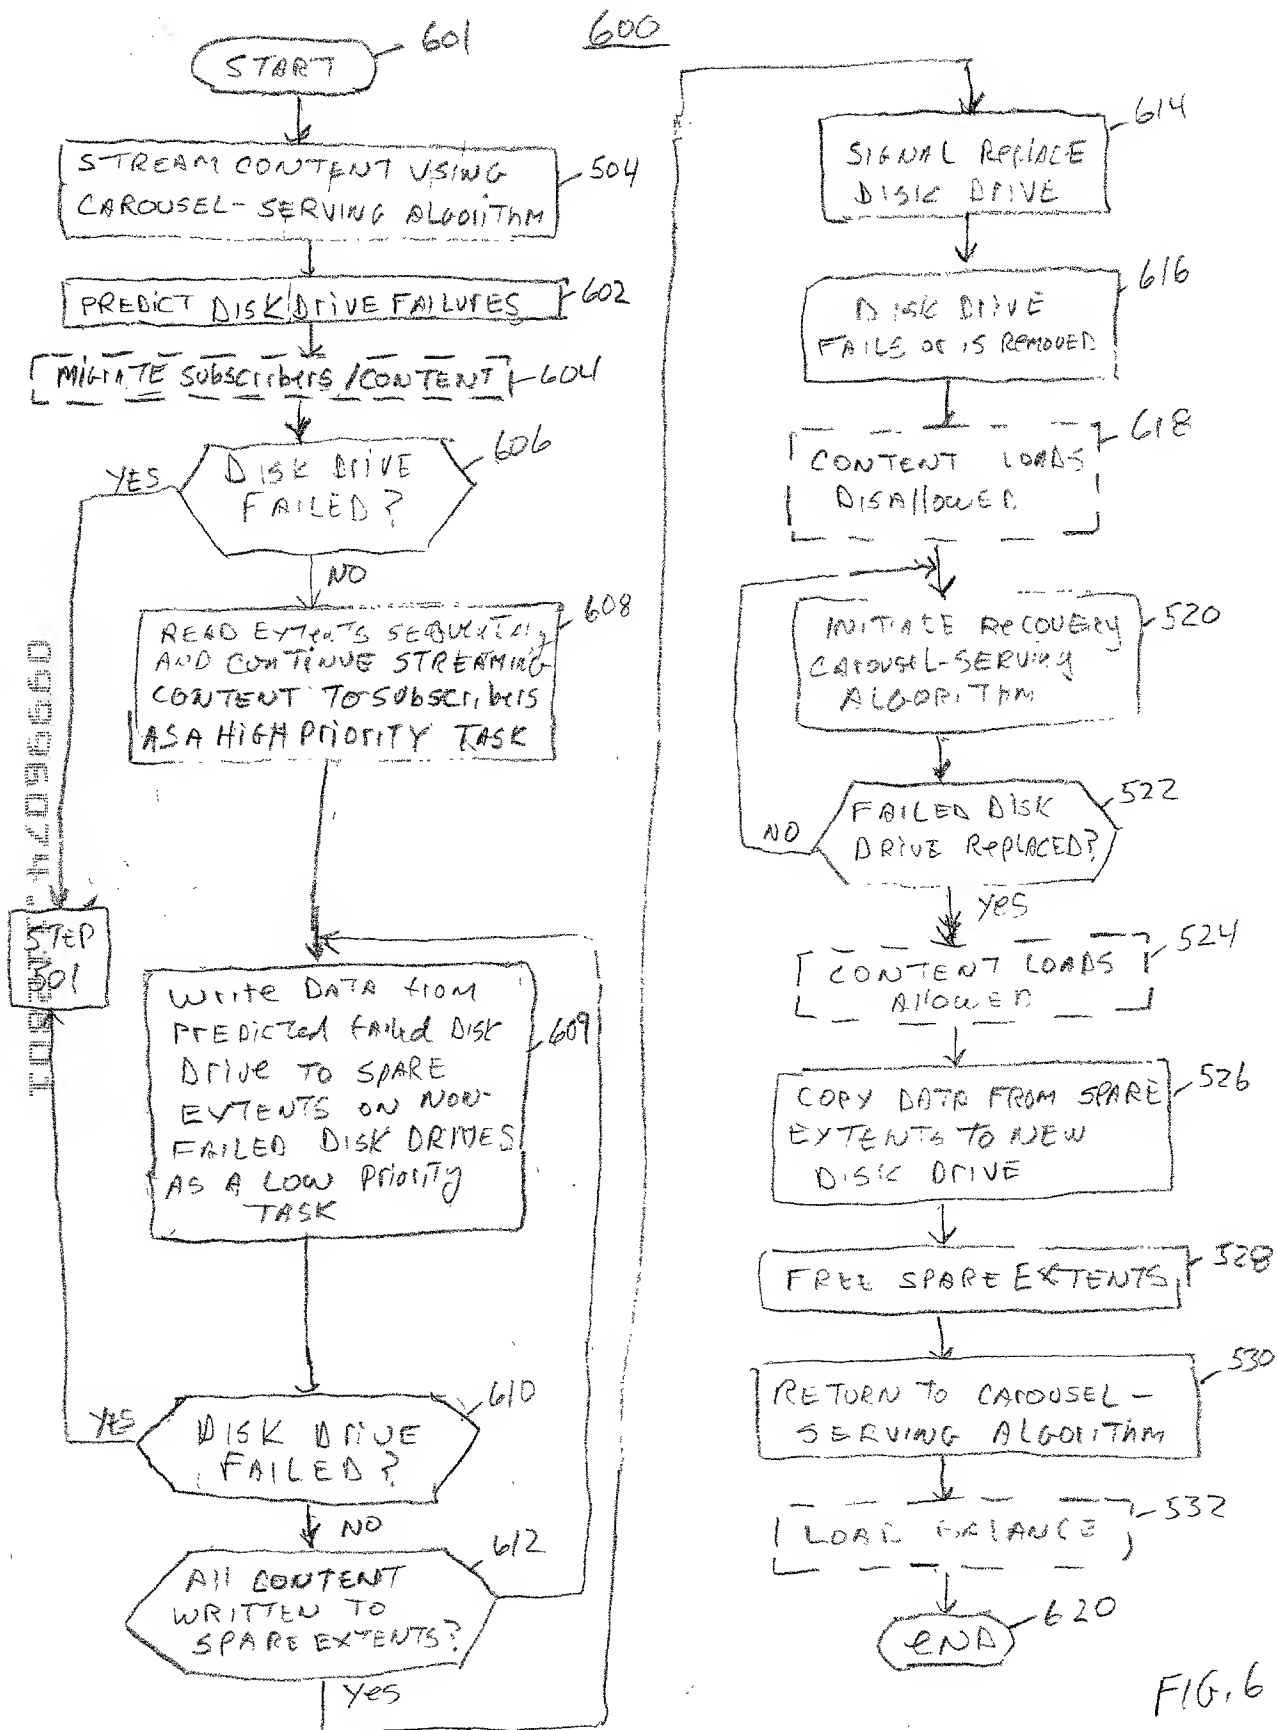 600
START
601
STREAM CONTENT USING
CAROUSEL-SERVING ALGORITHM
504
PREDICT DISK DRIVE FAILURES
602
MIGRATE SUBSCRIBERS/CONTENT
604
DISK DRIVE
FAILED?
606
YES
NO
READ EXTENTS SEQUENTIALLY
AND CONTINUE STREAMING
CONTENT TO SUBSCRIBERS
AS A HIGH PRIORITY TASK
608
STEP
501
WRITE DATA FROM
PREDICTED FAILED DISK
DRIVE TO SPARE
EXTENTS ON NON-
FAILED DISK DRIVES
AS A LOW PRIORITY
TASK
609
DISK DRIVE
FAILED?
610
YES
NO
All CONTENT
WRITTEN TO
SPARE EXTENTS?
612
Yes
SIGNAL REPLACE
DISK DRIVE
614
DISK DRIVE
FAILE OR IS REMOVED
616
CONTENT LOADS
DISAllOWED
618
INITIATE RECOVERY
CAROUSEL-SERVING
ALGORITHM
520
FAILED DISK
DRIVE REPLACED?
522
NO
Yes
CONTENT LOADS
AllOWED
524
COPY DATA FROM SPARE
EXTENTS TO NEW
DISK DRIVE
526
FREE SPARE EXTENTS
528
RETURN TO CAROUSEL-
SERVING ALGORITHM
530
LOAD BALANCE
532
END
620
FIG. 6